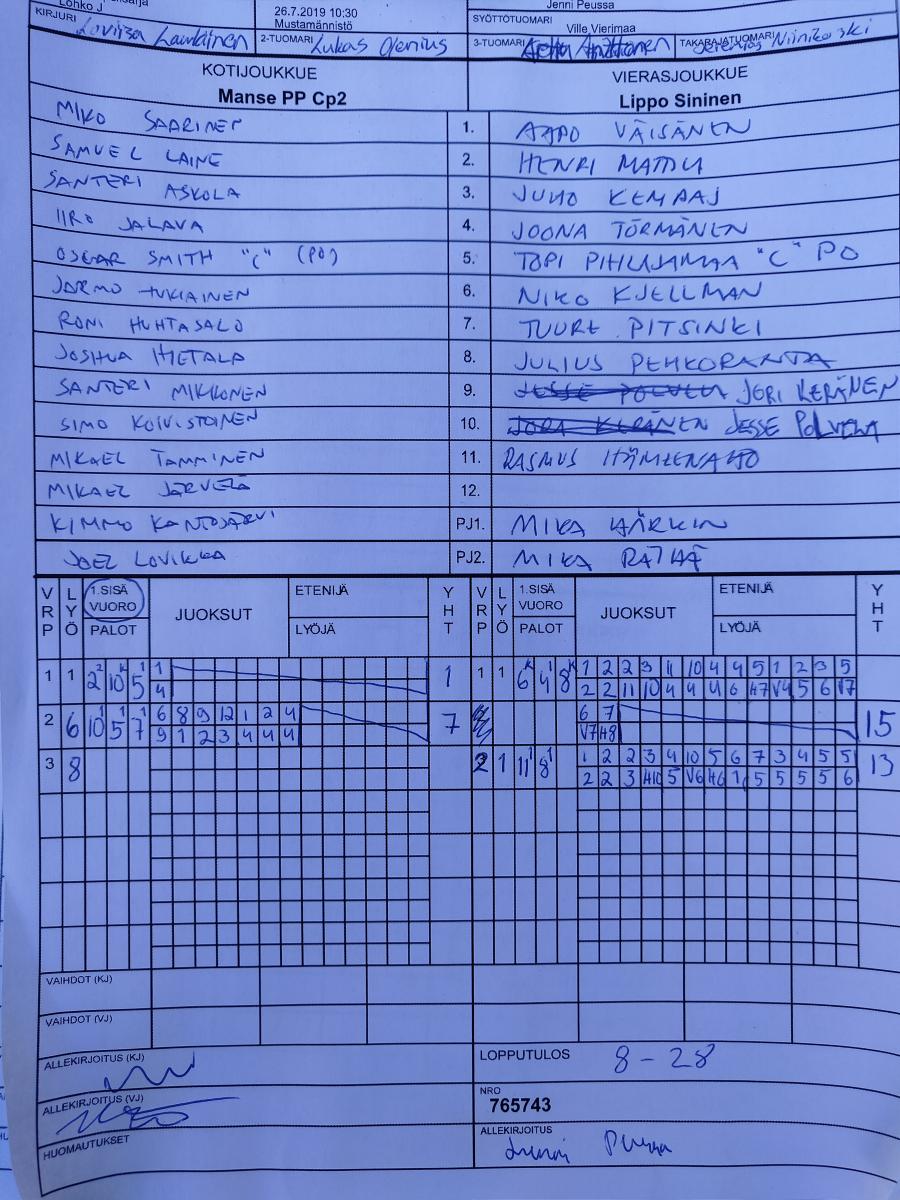 Lohko J
Jenni Peussa
KIRJURI
26.7.2019 10:30
Mustamännistö
SYÖTTÖTUOMARI
Ville Vierimaa
Loviisa
2-TUOMARI Lukas
3-TUOMARI
TAKARAJATUOMARI Niinikoski
KOTIJOUKKUE
VIERASJOUKKUE
Manse PP Cp2
Lippo Sininen
MIKO SAARINEN 1. AAPO VÄISÄNEN
SAMUEL LAINE 2. HENRI
SANTERI ASKOLA 3. JUHO
IIRO JALAVA 4. JOONA TÖRMÄNEN
OSCAR SMITH "C" (PO) 5. TOPI PIHLAJAMAA "C" PO
JORMO TUKIAINEN 6. NIKO KJELLMAN
RONI HUHTASALO 7. TUURE PITSINKI
JOSHUA HIETALA 8. JULIUS PEHKORANTA
SANTERI MIKKONEN 9. JORI KERÄNEN
SIMO KOIVISTOINEN 10. JESSE POLVELA
MIKAEL TAMMINEN 11. RASMUS
MIKAEL JÄRVELÄ 12.
KIMMO KANTOJÄRVI PJ1. MIKA HÄRKIN
JOEL LOVIKKA PJ2. MIKA
VRP LYÖ 1.SISÄ VUORO PALOT JUOKSUT ETENIJÄ LYÖJÄ YHT VRP LYÖ 1.SISÄ VUORO PALOT JUOKSUT ETENIJÄ LYÖJÄ YHT
1 1 2 10 5 1 1 1 1 6 4 8 1 2 2 3 11 10 4 4 5 1 2 3 5
4 2 2 11 10 4 4 4 6 H7 V4 5 6 V7
2 6 10 5 7 6 8 9 12 1 2 4 7 6 7 15
9 1 2 3 4 4 4 V7 H8
3 8 2 1 11 8 1 2 2 3 4 10 5 6 7 3 4 5 5 13
2 2 3 H10 5 V6 H6 1 5 5 5 5 6
VAIHDOT (KJ)
VAIHDOT (VJ)
ALLEKIRJOITUS (KJ)
LOPPUTULOS 8-28
ALLEKIRJOITUS (VJ)
NRO
765743
HUOMAUTUKSET
ALLEKIRJOITUS